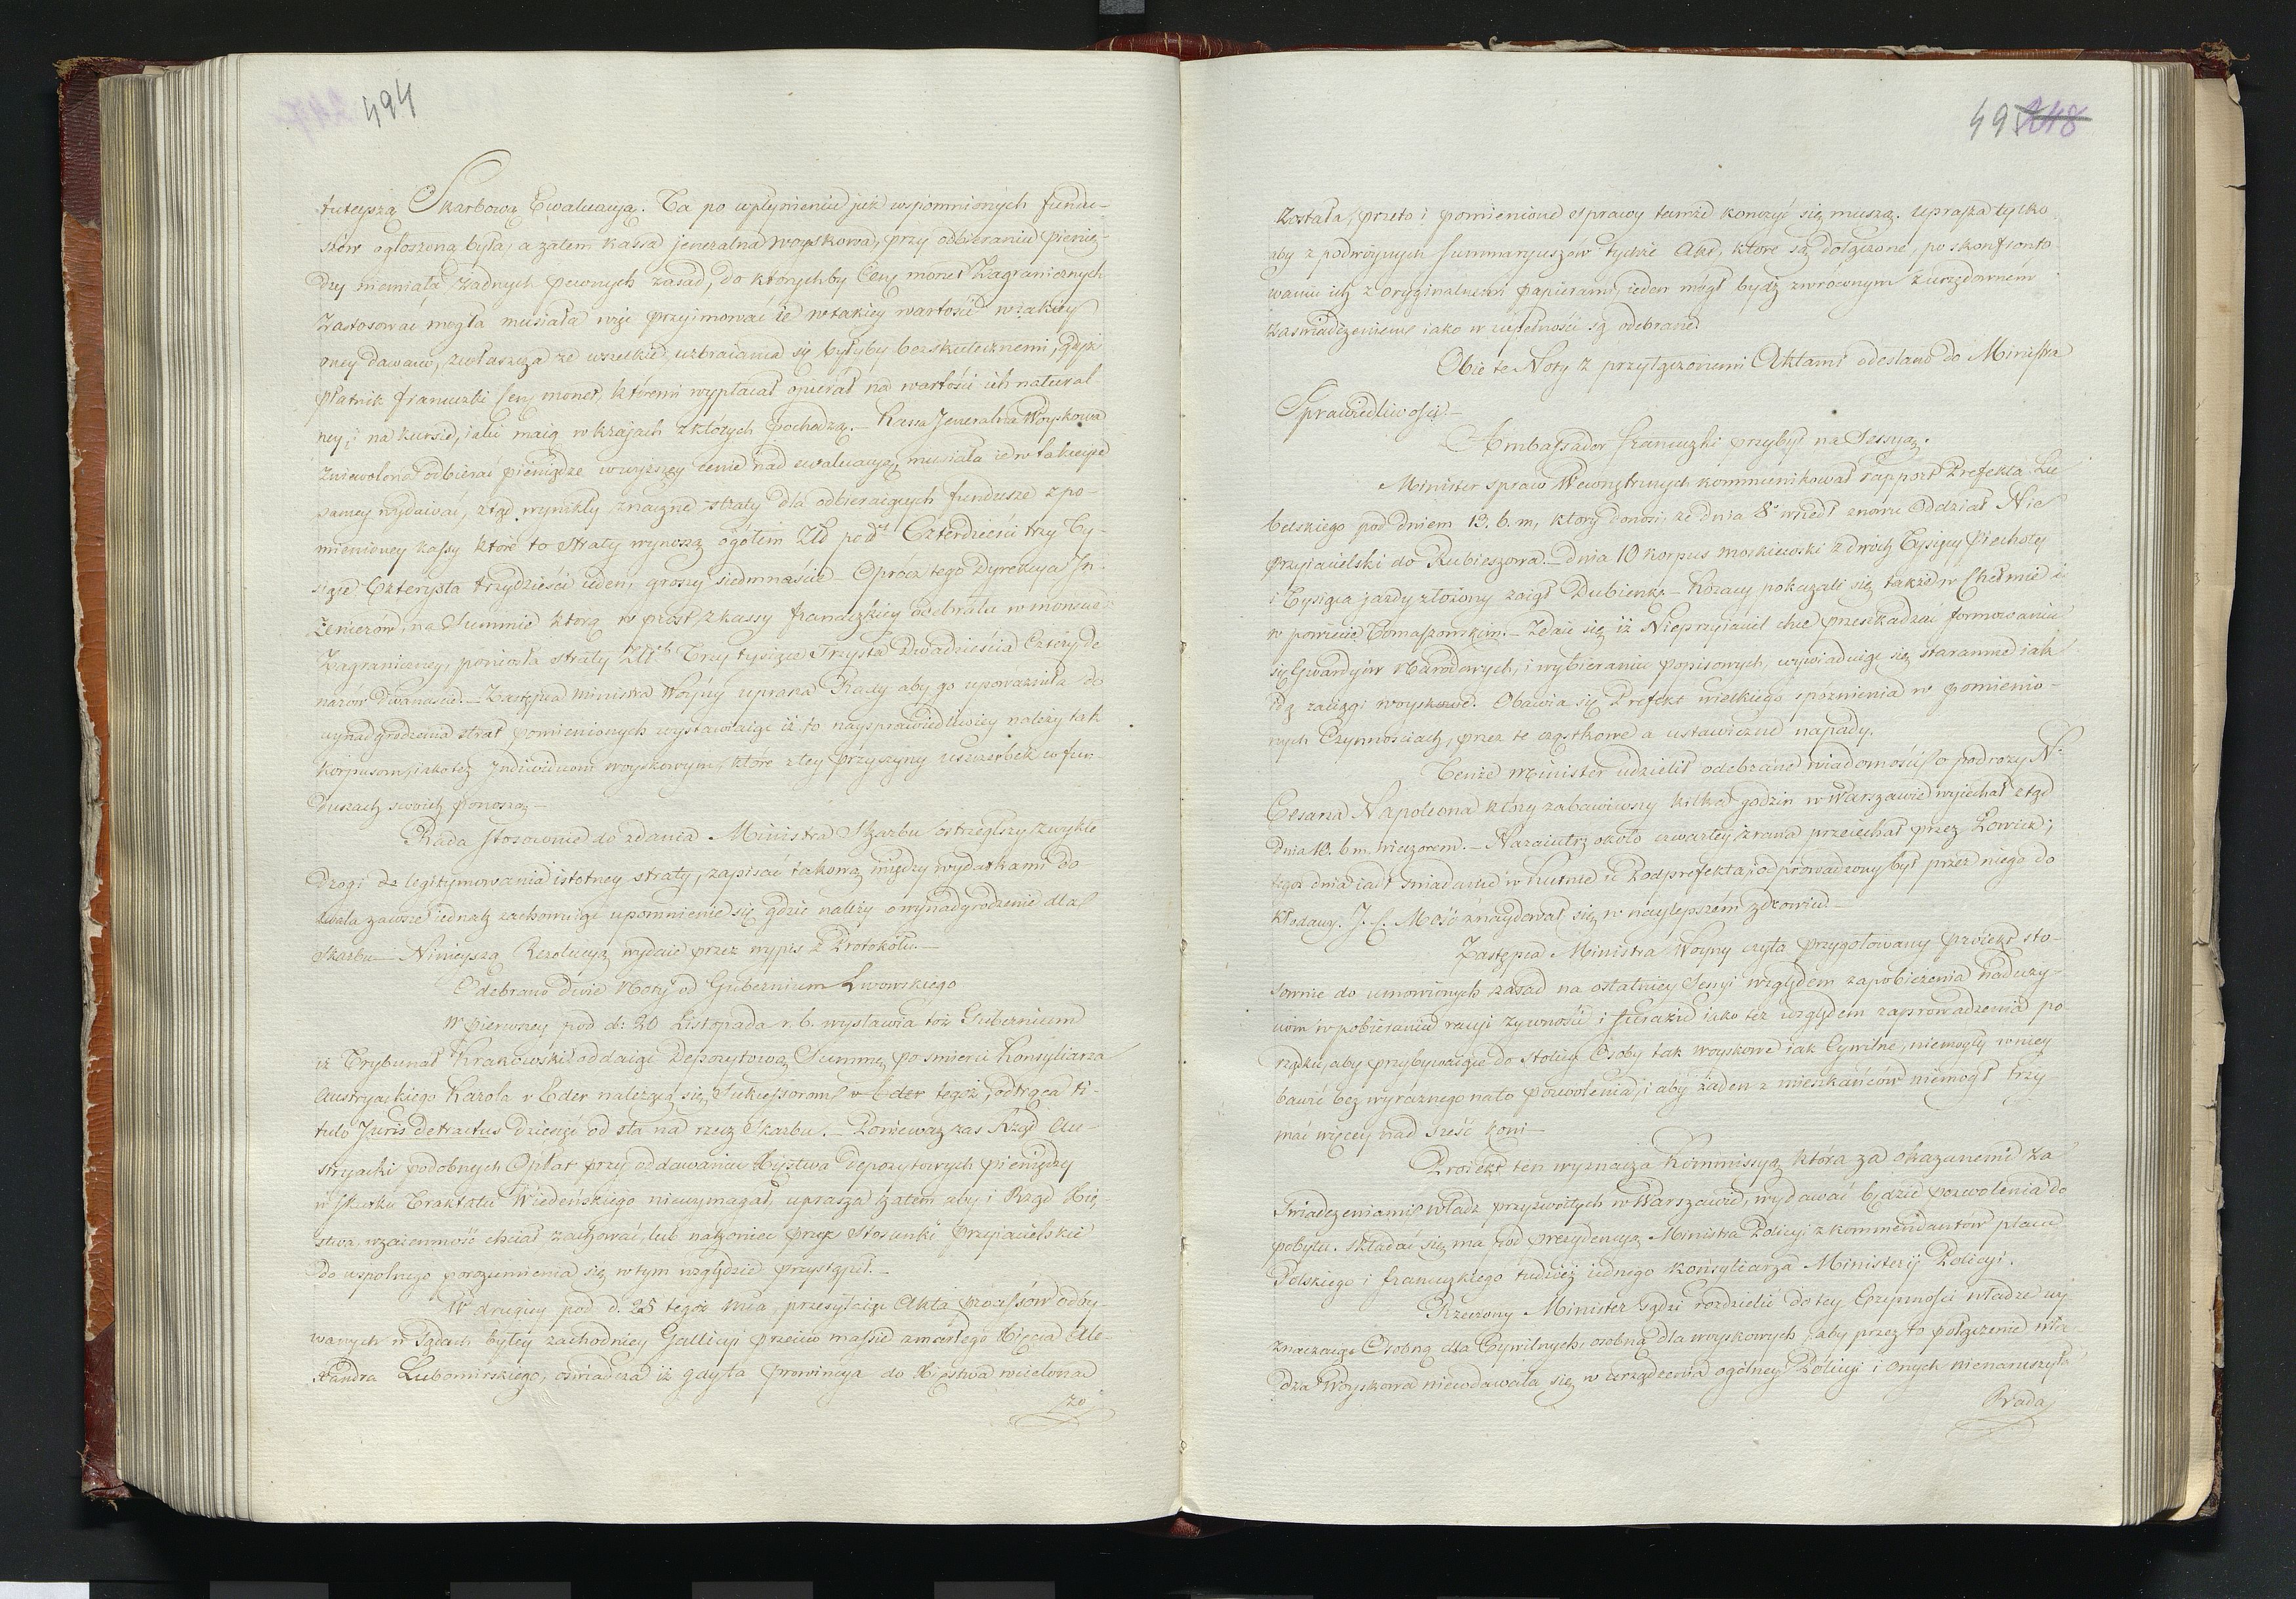 494
tuteyszą Skarbową Ewaluacyą. Ta po wpłynieniu już wspomnionych fundu-
szów ogłoszoną była, a zatem kassa jeneralna woyskowa, przy odbieraniu pienię-
dzy niemiała żadnych pewnych zasad, do którychby Ceny monet Zagranicznych
Zastosować mogła musiała więc przyimować ie w takiey wartości w iakiey
oney dawano, zwłaszcza że wszelkie uzbraiania się byłyby bezskutecznemi, gdyż
płatnik francuzki Ceny monet, któremi wypłacał opierał na wartości ich natural-
ney, i na kursie, iaki maią w krajach z których pochodzą. – Kassa Jeneralna Woyskowa
zniewolona odbierać pieniądze w wyższey cenie nad ewaluacyą, musiała ie w takieyże
samey wydawać, ztąd wynikły znaczne straty dla odbieraiących fundusze z po-
mienioney kassy które to straty wynoszą ogółem Złł. pod Czterdzieści trzy Ty-
siące Czterysta trzydzieści ieden, groszy siedmnaście – Oprócz tego Dyrekcya In-
żenierów, na Summie którą w prost z kassy francuzkiey odebrała w monecie
Zagraniczney, poniosła straty Złłch Trzy tysiące Trzysta Dwadzieścia Cztery, de
narów Dwanaście. – Zastępca Ministra Woyny uprasza Rady aby go upoważniła do
wynadgrodzenia strat pomienionych wystawiaiąc iż to naysprawiedliwiey należy tak
korpusom, iako też Indiwiduom woyskowym, które z tey przyczyny uszczerbek w fun-
duszach swoich ponoszą –
Rada stosownie do zdania Ministra Skarbu ostrzegłszy zwykłe
drogi do legitymowania istotney straty, zapisać takową między wydatkami do
zwala zawsze iednak zachowuiąc upomnienie się gdzie należy o wynadgrodzenie dla
Skarbu – Ninieyszą Rezolucyą wydaie przez wypis z Protokołu. –
Odebrano dwie Noty od Gubernium Lwowskiego
W pierwszey pod d: 20 Listopada r. b. wystawia toż Gubernium
iż Trybunał Krakowski oddaiąc Depozytową Summę po śmierci Konsyliarza
Austryackiego Karola v Eder należącą się Sukcessorom v Eder tegoż, odtrąca ti-
tulo Juris detractus dziesięć od sta na rzecz Skarbu. – Ponieważ zaś Rząd Au-
stryacki podobnych Opłat przy oddawaniu Xięstwa Depozytowych pieniędzy
w skutku Traktatu Wiedeńskiego niewymagał, uprasza zatem aby i Rząd Xię-
stwa wzaiemność chciał zachować, lub nakoniec przez Stosunki Przyjacielskie
do wspólnego porozumienia się w tym względzie przystąpił. –
W drugiey pod d. 25 tegoż mca, przesyłaiąc Akta processów odby-
wanych w Sądach byłey zachodniey Gallicyi przeciw massie zmarłego Xięcia Ale-
xandra Lubomirskiego, oświadcza iż gdy ta prowincya do Xięstwa wcielona
zo
495 248
Została, przeto i pomienione sprawy tamże kończyć się muszą. Uprasza tylko
aby z podwóynych Summaryuszów tychże Akt, które są dołączone, po skonfronto-
waniu ich z oryginalnemi papierami, ieden mógł bydź zwróconym z urzędownem
zaświadczeniem iako w zupełności są odebrane.
Obie te Noty z przyłączonemi Aktami odesłano do Ministra
Sprawiedliwości. –
Ambassador francuzki przybył na Sessyą.
Minister spraw Wewnętrznych kommunikował rapport Prefekta Lu
belskiego pod dniem 13. b. m. który donosi, że dnia 8o wszedł znowu Oddział Nie
przyjacielski do Rubieszowa. – Dnia 10 korpus moskiewski z dwóch Tysięcy piechoty
i Tysiąca jazdy złożony zaiął Dubienkę – Kozacy pokazali się także w Chełmie i
w powiecie Tomaszowskim. – Zdaie się iż Nieprzyiaciel chce przeszkadzać formowaniu
się Gwardyów Narodowych, i wybieraniu popisowych, wywiaduiąc się starannie iak
idą zaciągi woyskowe. Obawia się Prefekt wielkiego spoźnienia w pomienio-
nych Czynnościach, przez te cząstkowe a ustawiczne napady.
Tenże Minister udzielił odebrane wiadomości o podroży N.
Cesarza Napoleona który zabawiwszy kilka godzin w Warszawie wyjechał ztąd
Dnia 10. b m wieczorem. – Nazaiutrz około czwartey z rana przejechał przez Łowicz;
tegoż dnia iadł śniadanie w Kutnie u Podprefekta, odprowadzony był przez niego do
Kłodawy. J. C. Mość znaydował się w naylepszem zdrowiu. –
Zastępca Ministra Woyny czyta przygotowany projekt sto-
sownie do umówionych zasad na ostatniey Sessyi względem zapobieżenia naduży-
ciom w pobieraniu racyi żywności i furażu iako też względem zaprowadzenia po
rządku, aby przybywaiące do stolicy Osoby tak woyskowe iak Cywilne, niemogły w niey
bawić bez wyraźnego na to pozwolenia, i aby żaden z mieszkańców niemógł trzy
mać więcey nad sześć koni –
Projekt ten wyznacza Kommissyą która za okazanemi za
świadczeniami władz przyzwoitych w Warszawie, wydawać będzie pozwolenia do
pobytu. składać się ma pod prezydencyą Ministra Policyi z kommendantów placu
Polskiego i francuzkiego tudzież iednego konsyliarza Ministeryi Policyi.
Rzeczony Minister sądzi rozdzielić do tey Czynności władze wy
znaczaiąc Osobną dla Cywilnych, osobną dla woyskowych, aby przez to połączenie wła
dza Woyskowa niewdawała się w urządzenia ogólney Policyi i onych nienaruszyła
Rada